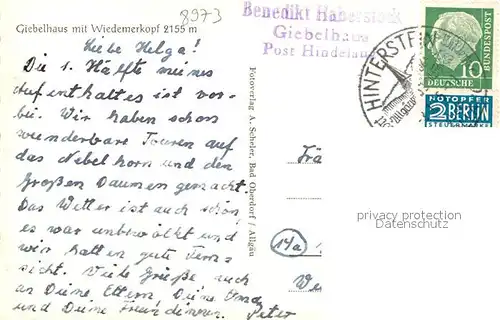 8973
Giebelhaus mit Wiedemerkopf 2155 m
Liebe Helga!
Die 1. Hälfte meines
Aufenthaltes ist vor-
bei. Wir haben schon
wunderbare Touren auf
das Nebelhorn und den
Großen Daumen gemacht.
Das Wetter ist auch schön,
es war unbewölkt und
wir hatten gute Fern-
sicht. Viele Grüße auch
an Deine Eltern Deine Oma
und Deine Freundinnen. Peter
Fotoverlag A. Scheler, Bad Oberdorf / Allgäu
Benedikt Haberstock
Giebelhaus
Post Hindelang
HINTERSTEIN
10
DEUTSCHE
BUNDESPOST
NOTOPFER
2 BERLIN
STEUERMARKE
14a
privacy protection
Datenschutz